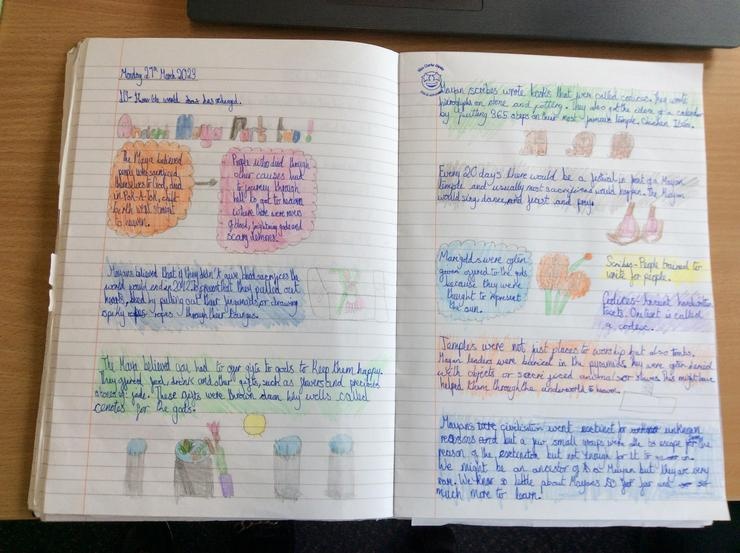 Monday 27th March 2023
LO- How the world has changed.
Ancient Maya Part two!
The Maya believed
people who sacrificed
themselves to God, died
in Pok-A-Tok, child
birth went straight
to heaven.
People who died through
other causes had
to journey through
hell to get to heaven
where there were rivers
of blood, frightning gods and
scary demons.
Mayans believed that if they didn't give God sacrifices the
world would end in 2012. It's proof that they pulled out
hearts, blood by pulling out their
spiky ropes through their tounges.
The Maya believed you had to offer gifts to gods to keep them happy.
They offered food, drink and other gifts, such as flowers and precious
stones of jade. These gifts were thrown down big wells called
cenotes for the gods.
Mayan scribes wrote books that were called codice. They wrote
hieroglyphs on stone and pottery. They also got the idea of a calendar
by putting 365 steps on their most famous temple. Chichen Itza.
Every 20 days there would be a festival in front of a Mayan
temple and usually most sacrifices would happen. The Mayan
would sing, dance, and feast and pray.
Marigolds were often
offered to the gods
because they were
thought to represent
the sun.
Scribes - People trained to
write for people.
Codices - Ancient handwritten
texts. One text is called
a codex.
Temples were not just places to worship but also tombs.
Mayan leaders were buried in the pyramids. They were often buried
with objects or sacrificed animals or slaves. This might have
helped them through the underworld to heaven.
Mayans civilisation went extinct for unknown
reasons but a few small groups were able to escape for the
reason of the extinction but not enough for it to
We might be an ancestor of a Mayan but they are very
rare. We know so little about Mayans so far and so
much more to learn.